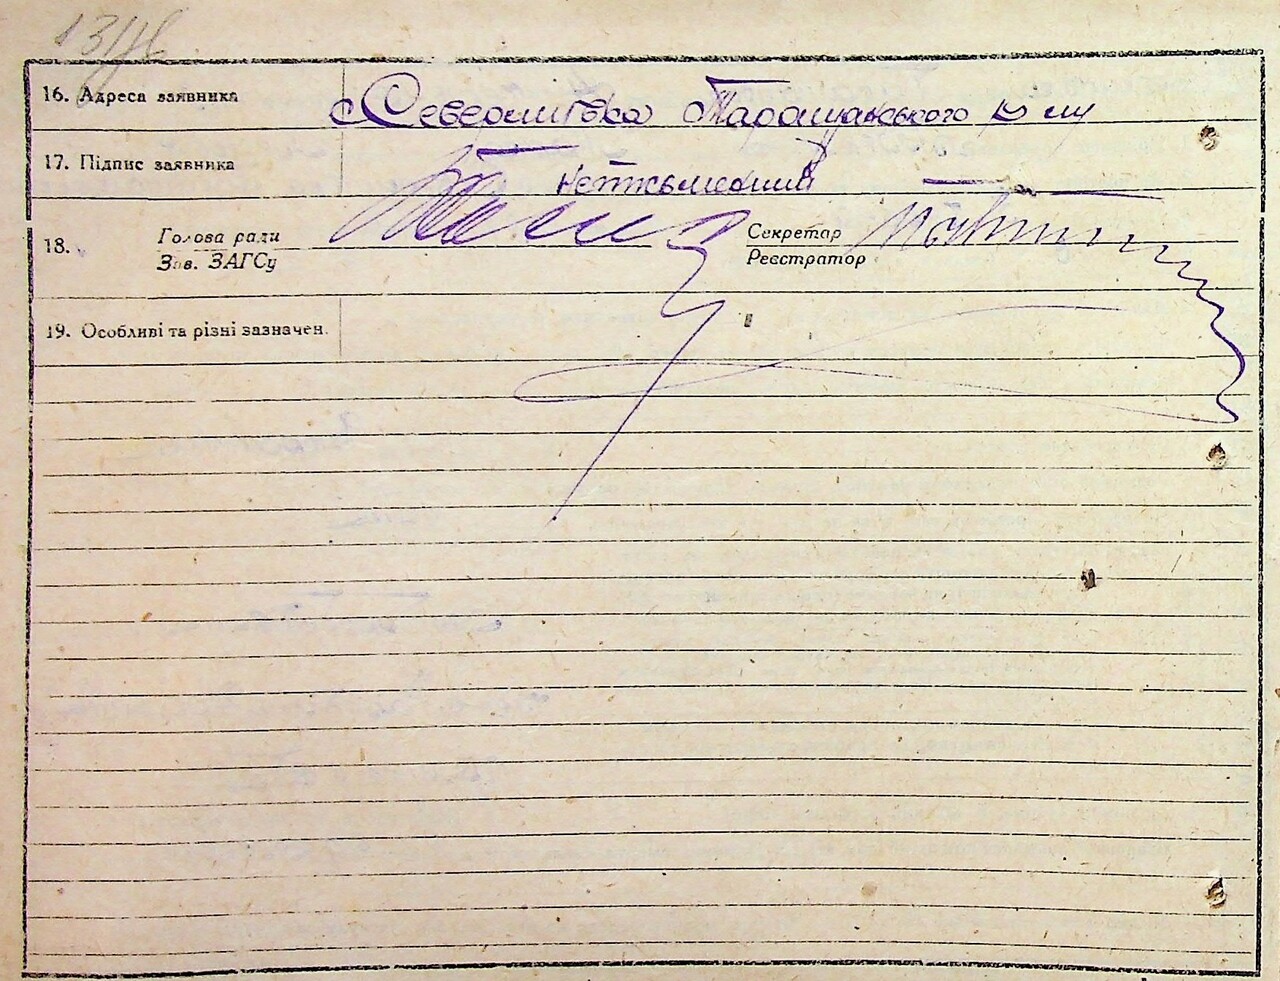 16. Адреса заявника с Северинівка Таращанського р-ну
17. Підпис заявника неписьменний
18. Голова ради Секретар
Зав. ЗАГСу Реєстратор
19. Особливі та різні зазначен.